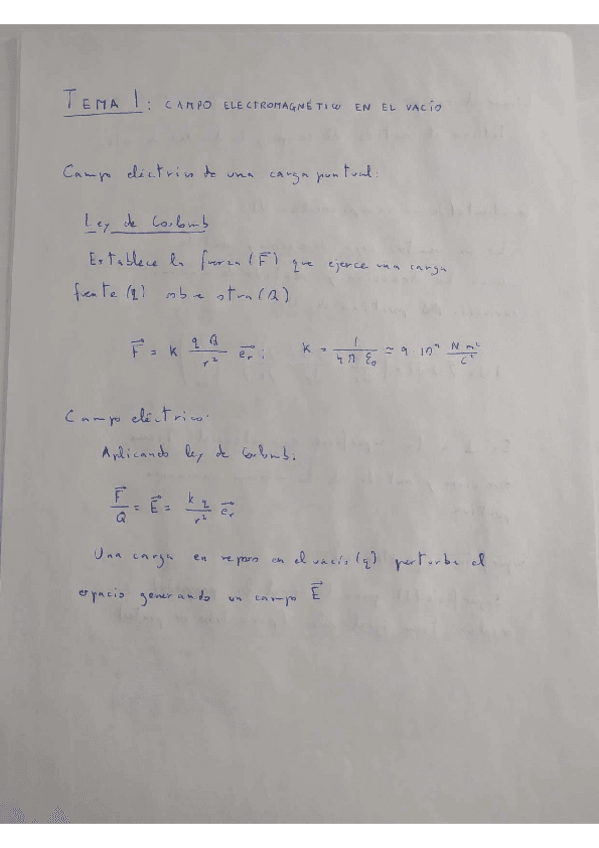 TEMA 1: CAMPO ELECTROMAGNÉTICO EN EL VACÍO
Campo eléctrico de una carga puntual:
Ley de Coulomb
Establece la fuerza (F⃗) que ejerce una carga
fuente (q) sobre otra (Q)
F⃗ = k q Q / r² e⃗r ; k = 1 / 4π ε₀ ≈ 9 10⁹ N m² / C²
Campo eléctrico:
Aplicando ley de Coulomb:
F⃗ / Q = E⃗ = k q / r² e⃗r
Una carga en reposo en el vacío (q) perturba el
espacio generando un campo E⃗